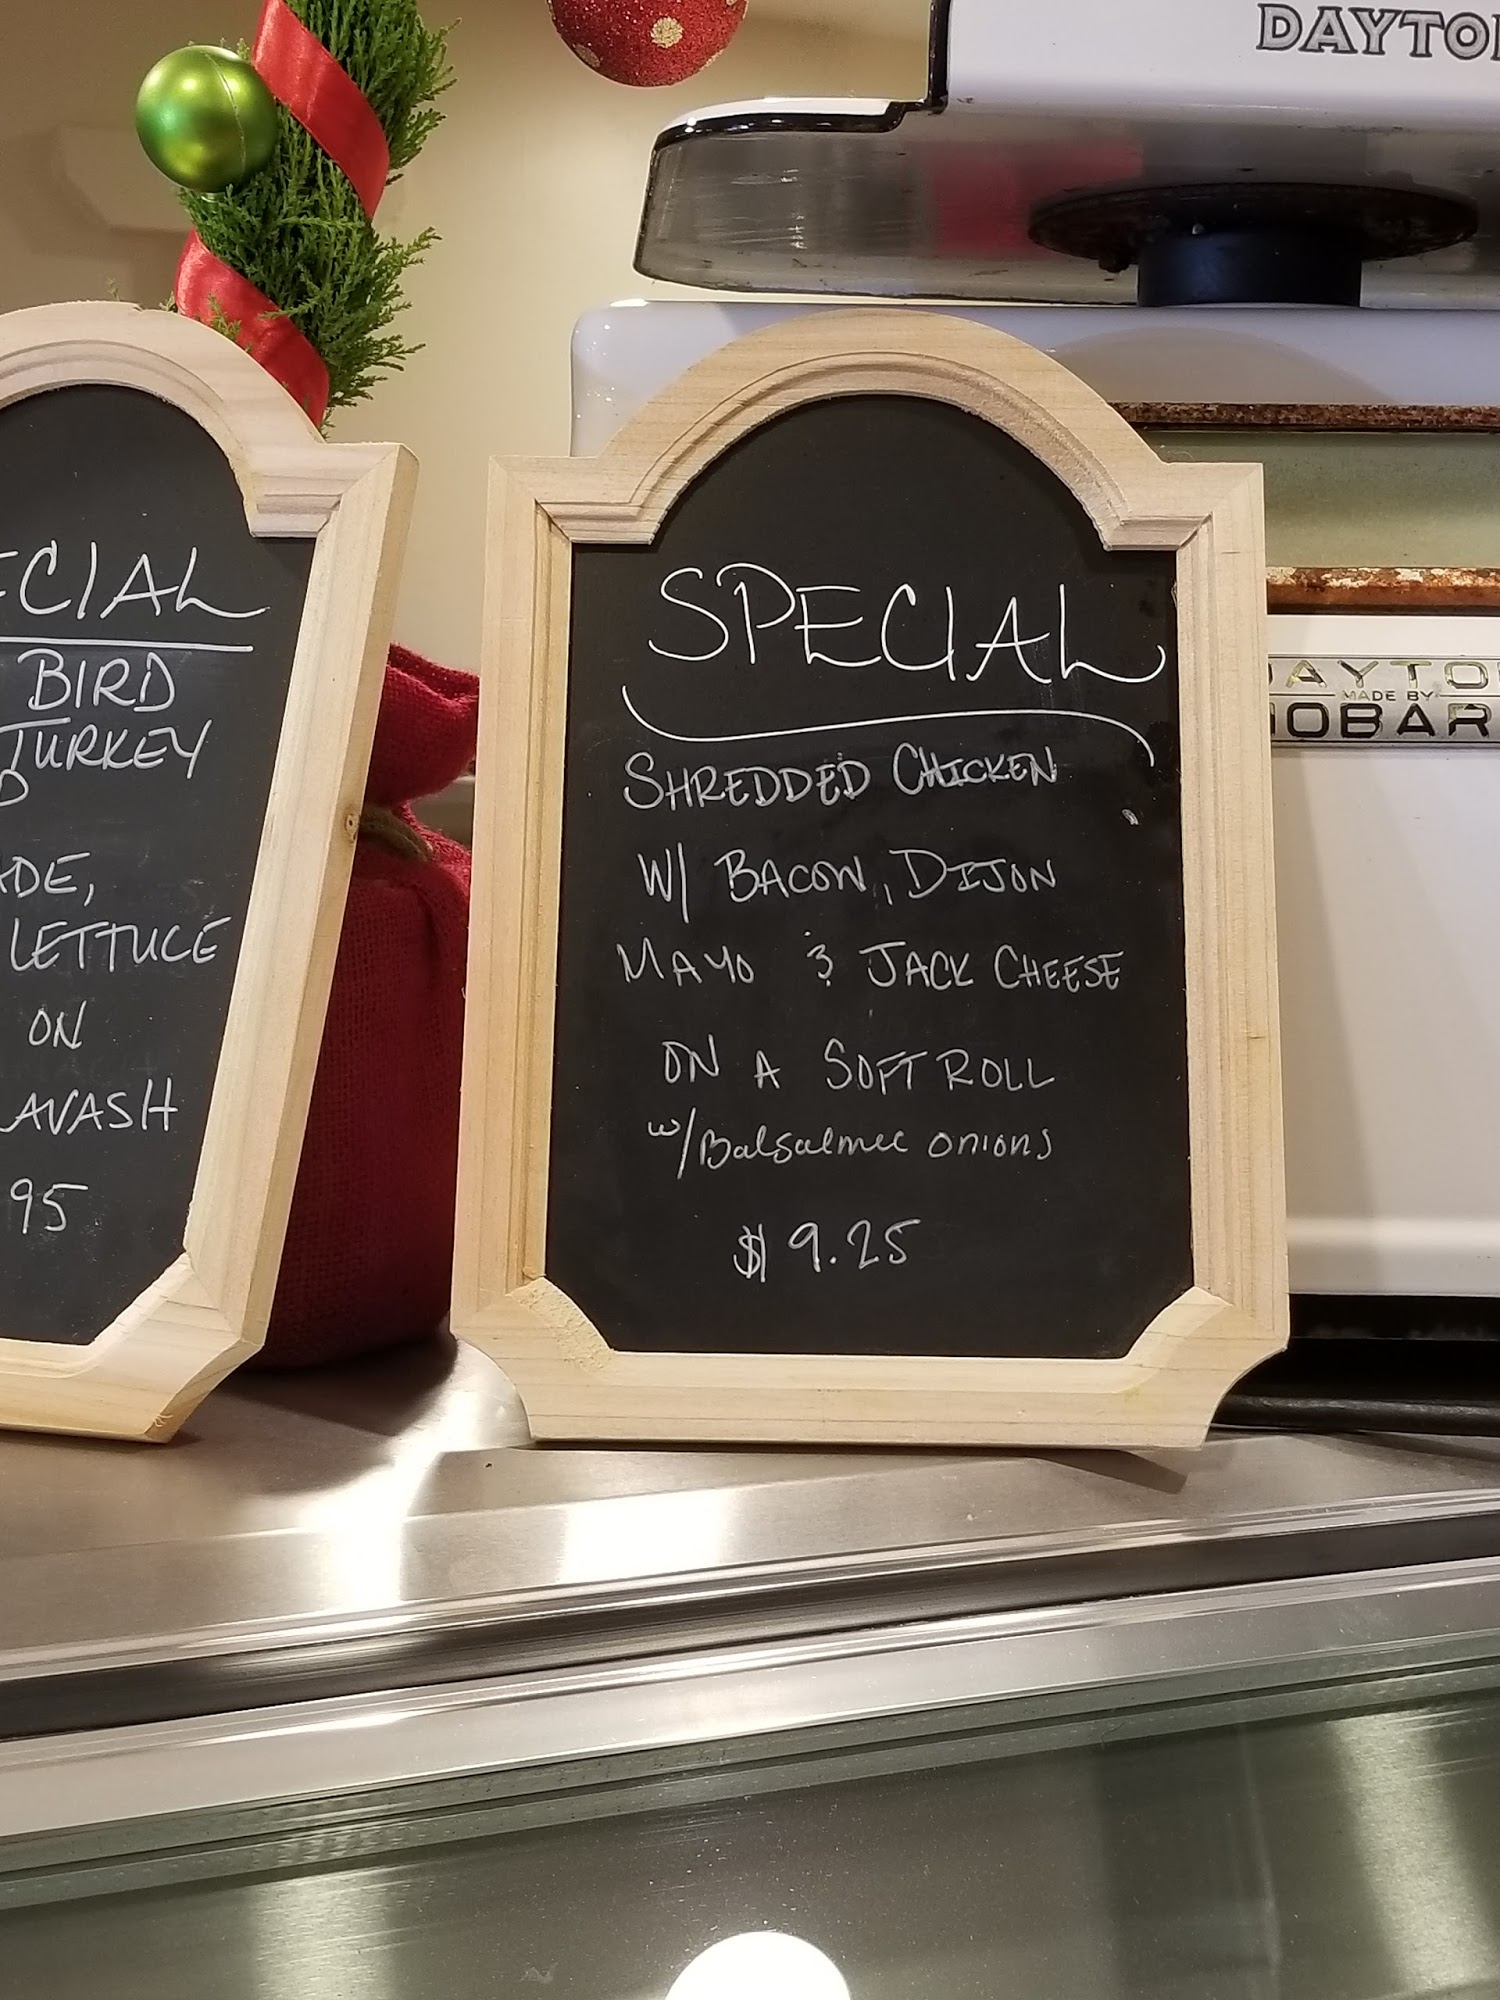 DAYTO
ECIAL
BIRD
TURKEY
D
ADE,
LETTUCE
ON
LAVASH
95
SPECIAL
SHREDDED CHICKEN
W/ BACON, DIJON
MAYO & JACK CHEESE
ON A SOFT ROLL
w/Balsalmec onions
$9.25
DAYTO
MADE BY
HOBAR